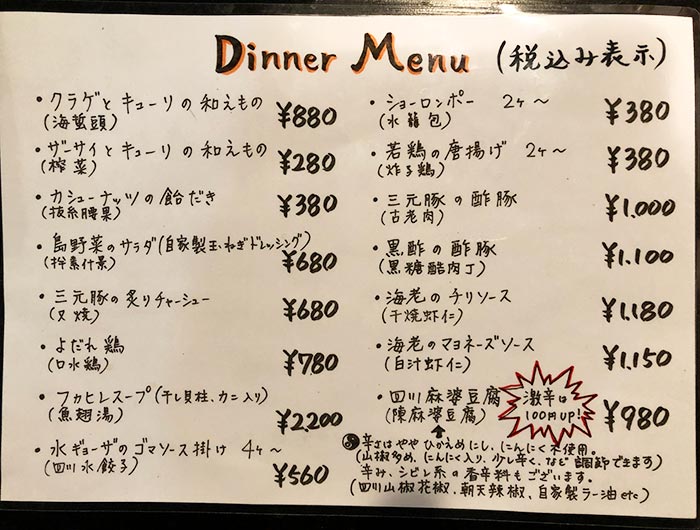 Dinner Menu (税込み表示)
・クラゲとキューリの和えもの ¥880
(海蜇頭)
・ザーサイとキューリの和えもの ¥280
(榨菜)
・カシューナッツの飴だき ¥380
(抜糸腰果)
・島野菜のサラダ(自家製玉ねぎドレッシング) ¥680
(拌素什景)
・三元豚の炙りチャーシュー ¥680
(叉焼)
・よだれ鶏 ¥780
(口水鶏)
・フカヒレスープ(干し貝柱、カニ入り) ¥2,200
(魚翅湯)
・水ギョーザのゴマソース掛け 4ヶ〜 ¥560
(四川水餃子)
・ショーロンポー 2ヶ〜 ¥380
(水籠包)
・若鶏の唐揚げ 2ヶ〜 ¥380
(炸子鶏)
・三元豚の酢豚 ¥1,000
(古老肉)
・黒酢の酢豚 ¥1,100
(黒糖酷肉丁)
・海老のチリソース ¥1,180
(干焼虾仁)
・海老のマヨネーズソース ¥1,150
(白汁虾仁)
・四川麻婆豆腐 ¥980
(陳麻婆豆腐)
激辛は
100円UP!
辛さはややひかえめにし、にんにく不使用。
(山椒多め、にんにく入り、少し辛く、など調節できます)
辛み、シビレ系の香辛料もございます。
(四川山椒花椒、朝天辣椒、自家製ラー油etc)